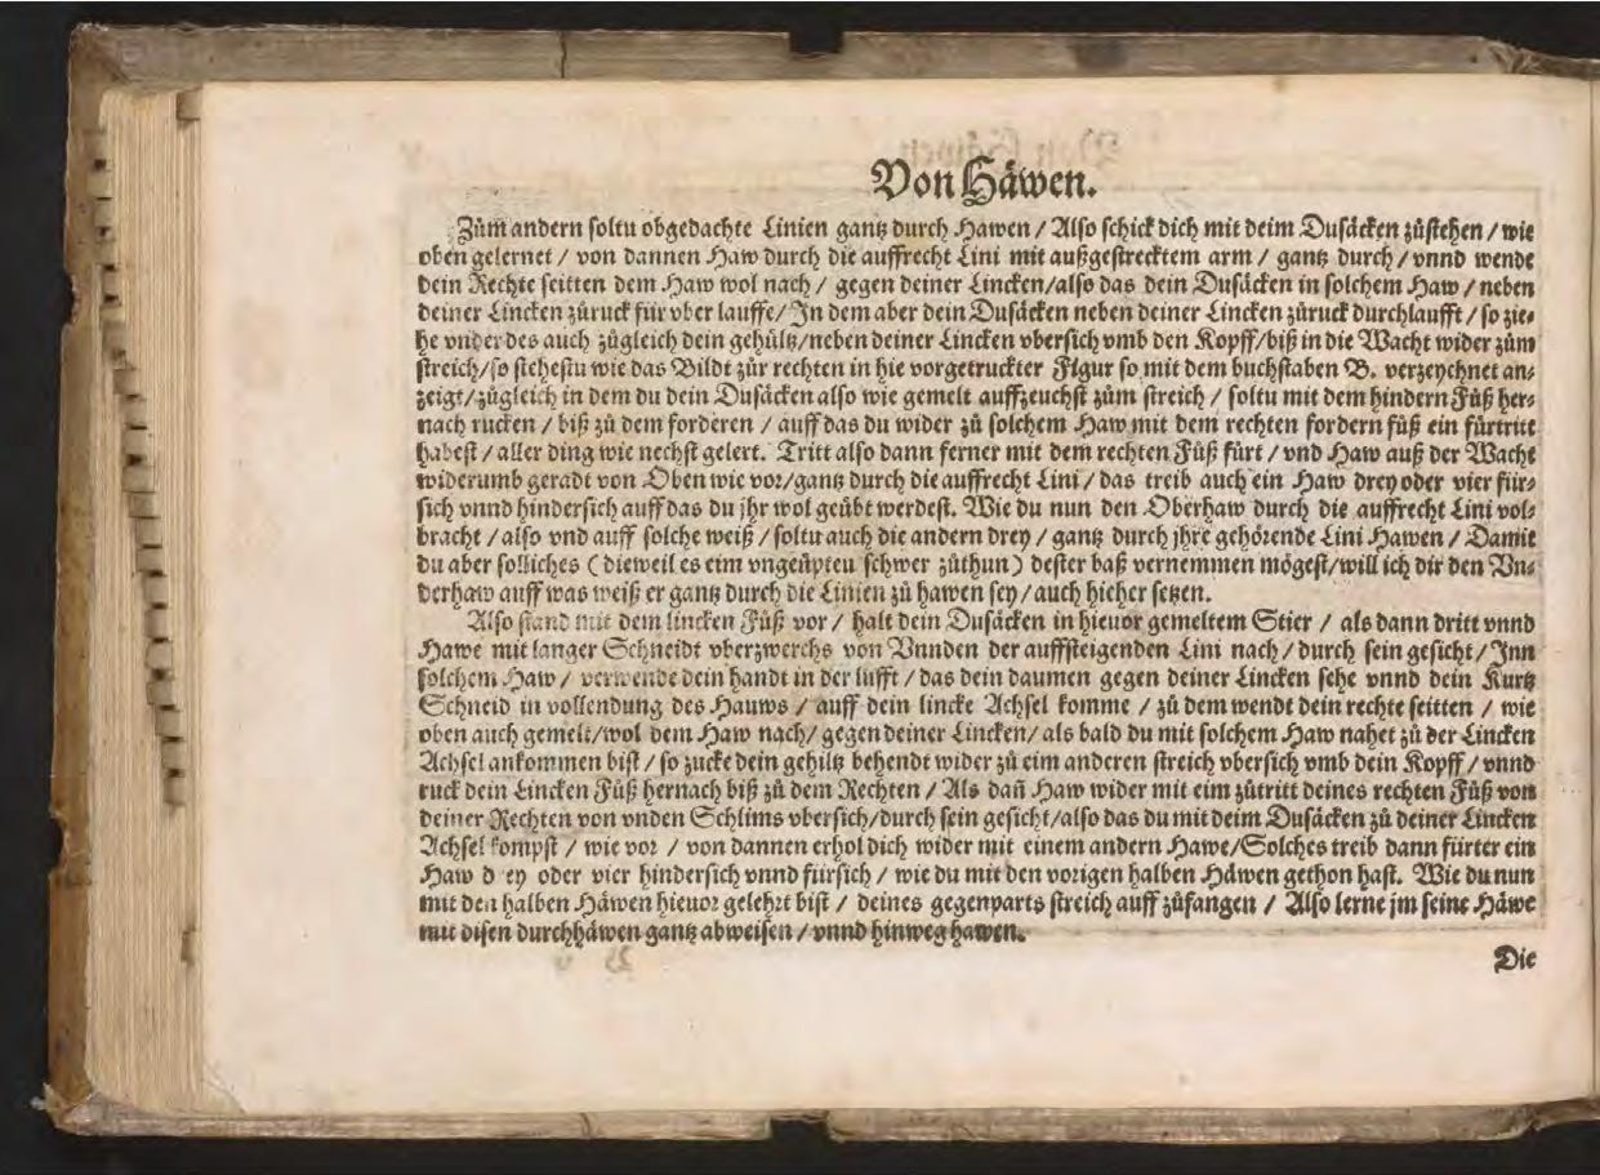 Von Häwen.
Zům andern soltu obgedachte Linien gantz durch Hawen / Also schick dich mit deim Dusäcken zůstehen / wie
oben gelernet / von dannen Haw durch die auffrecht Lini mit außgestrecktem arm / gantz durch / vnnd wende
dein Rechte seitten dem Haw wol nach / gegen deiner Lincken/also das dein Dusäcken in solchem Haw / neben
deiner Lincken zůruck für vber lauffe/ In dem aber dein Dusäcken neben deiner Lincken zůruck durchlaufft / so zie-
he vnder des auch zůgleich dein gehültz/neben deiner Lincken vbersich vmb den Kopff/biß in die Wacht wider zům
streich/so stehestu wie das Bildt zůr rechten in hie vorgetruckter Figur so mit dem buchstaben B. verzeychnet an-
zeigt/zůgleich in dem du dein Dusäcken also wie gemelt auffzeuchst zům streich / soltu mit dem hindern Fůß her-
nach rucken / biß zů dem forderen / auff das du wider zů solchem Haw mit dem rechten fordern fůß ein fürtritt
habest / aller ding wie nechst gelert. Tritt also dann ferner mit dem rechten Fůß fürt / vnd Haw auß der Wacht
widerumb geradt von Oben wie vor/gantz durch die auffrecht Lini / das treib auch ein Haw drey oder vier für-
sich vnnd hindersich auff das du jhr wol geübt werdest. Wie du nun den Oberhaw durch die auffrecht Lini vol-
bracht / also vnd auff solche weiß / soltu auch die andern drey / gantz durch jhre gehörende Lini Hawen / Damit
du aber solliches ( dieweil es eim vngeüpten schwer zůthun ) dester baß vernemmen mögest/will ich dir den Vn-
derhaw auff was weiß er gantz durch die Linien zů hawen sey / auch hieher setzen.
Also stand mit dem lincken Fůß vor / halt dein Dusäcken in hieuor gemeltem Stier / als dann dritt vnnd
Hawe mit langer Schneidt vberzwerchs von Vnnden der auffsteigenden Lini nach / durch sein gesicht / Inn
solchem Haw / verwende dein handt in der lufft / das dein daumen gegen deiner Lincken sehe vnnd dein Kurtz
Schneid in vollendung des Hauws / auff dein lincke Achsel komme / zů dem wendt dein rechte seitten / wie
oben auch gemelt/wol dem Haw nach/ gegen deiner Lincken/ als bald du mit solchem Haw nahet zů der Lincken
Achsel ankommen bist / so zucke dein gehiltz behendt wider zů eim anderen streich vbersich vmb dein Kopff / vnnd
ruck dein Lincken Fůß hernach biß zů dem Rechten / Als dañ Haw wider mit eim zůtritt deines rechten Fůß von
deiner Rechten von vnden Schlims vbersich/durch sein gesicht/also das du mit deim Dusäcken zů deiner Lincken
Achsel kompst / wie vor / von dannen erhol dich wider mit einem andern Hawe/Solches treib dann fürter ein
Haw d ey oder vier hindersich vnnd fürsich / wie du mit den vorigen halben Häwen gethon hast. Wie du nun
mit den halben Häwen hieuor gelehrt bist / deines gegenparts streich auff zůfangen / Also lerne jm seine Häwe
mit disen durchhäwen gantz abweisen / vnnd hinweg hawen.
Die